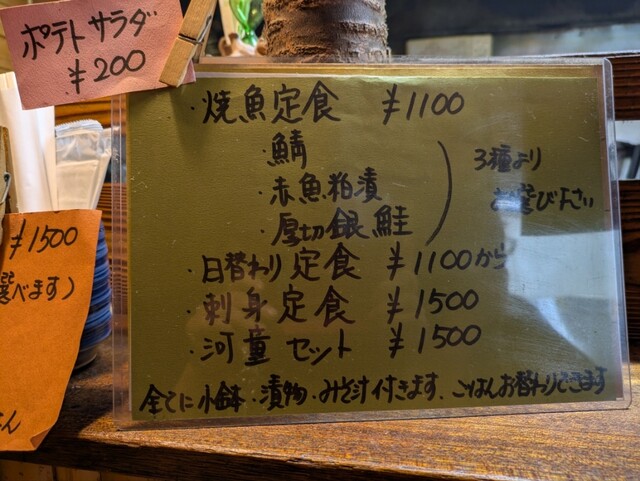 ポテトサラダ
¥200
・焼魚定食 ¥1100
・鯖
・赤魚粕漬
・厚切銀鮭
3種より
お選び下さい
・日替わり定食 ¥1100から
・刺身定食 ¥1500
・河童セット ¥1500
全てに小鉢・漬物・みそ汁付きます、ごはんお替わりできます
¥1500
選べます)